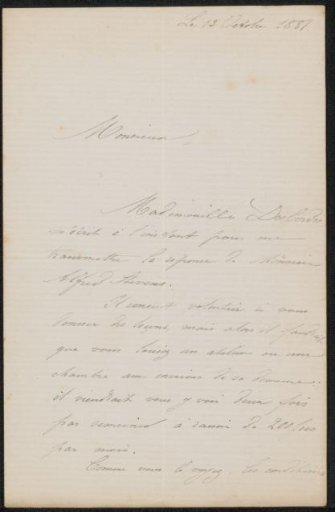 Le 13 Octobre 1881
Monsieur,
Mademoiselle Desbordes
m'écrit à l'instant pour me
transmettre la réponse de Monsieur
Alfred Stevens.
Il consent volontiers à vous
donner des leçons, mais alors il faudrait
que vous louiez un atelier ou une
chambre aux environs de sa demeure:
il viendrait vous y voir deux fois
par semaine à raison de 200 frs
par mois.
Comme vous le voyez, les conditions